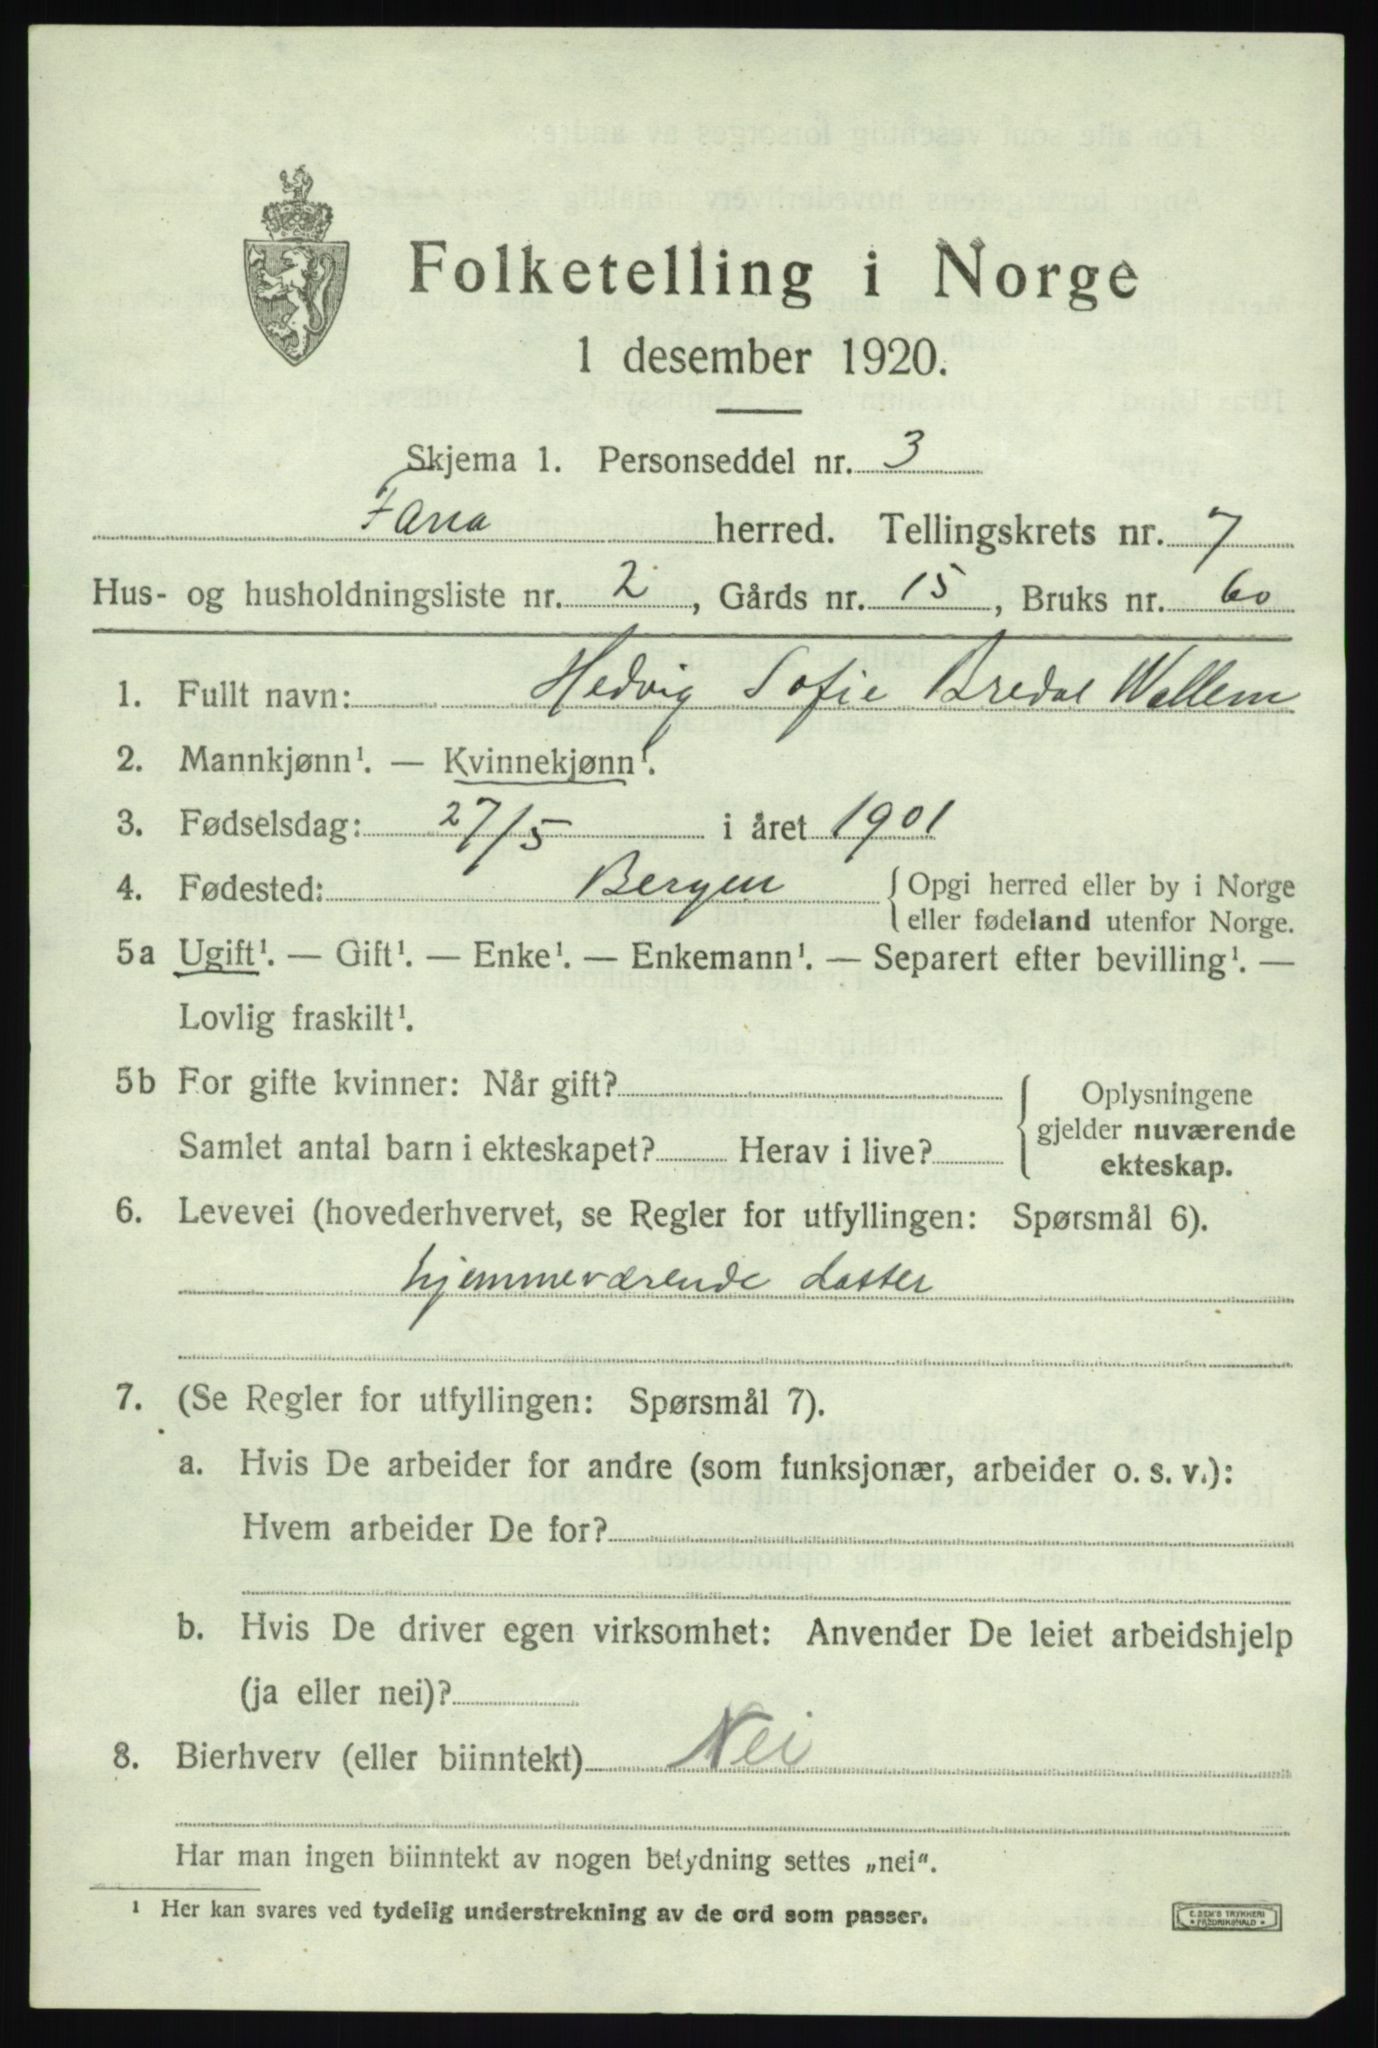 Folketelling i Norge
1 desember 1920.
Skjema 1. Personseddel nr. 3
Fana herred. Tellingskrets nr. 7
Hus- og husholdningsliste nr. 2, Gårds nr. 15, Bruks nr. 60
1. Fullt navn: Hedvig Sofie Bredal Wallem
2. Mannkjønn¹. — Kvinnekjønn¹.
3. Fødselsdag: 27/5 i året 1901
4. Fødested: Bergen { Opgi herred eller by i Norge
eller fødeland utenfor Norge.
5a Ugift¹. — Gift¹. — Enke¹. — Enkemann¹. — Separert efter bevilling¹. —
Lovlig fraskilt¹.
5b For gifte kvinner: Når gift? { Oplysningene
gjelder nuværende
Samlet antal barn i ekteskapet? Herav i live?
ekteskap.
6. Levevei (hovederhvervet, se Regler for utfyllingen: Spørsmål 6).
hjemmeværende datter
7. (Se Regler for utfyllingen: Spørsmål 7).
a. Hvis De arbeider for andre (som funksjonær, arbeider o. s. v.):
Hvem arbeider De for?
b. Hvis De driver egen virksomhet: Anvender De leiet arbeidshjelp
(ja eller nei)?
8. Bierhverv (eller biinntekt) Nei
Har man ingen biinntekt av nogen betydning settes „nei“.
¹ Her kan svares ved tydelig understrekning av de ord som passer.
E. SEM'S TRYKKERI
• FREDRIKSHALD •